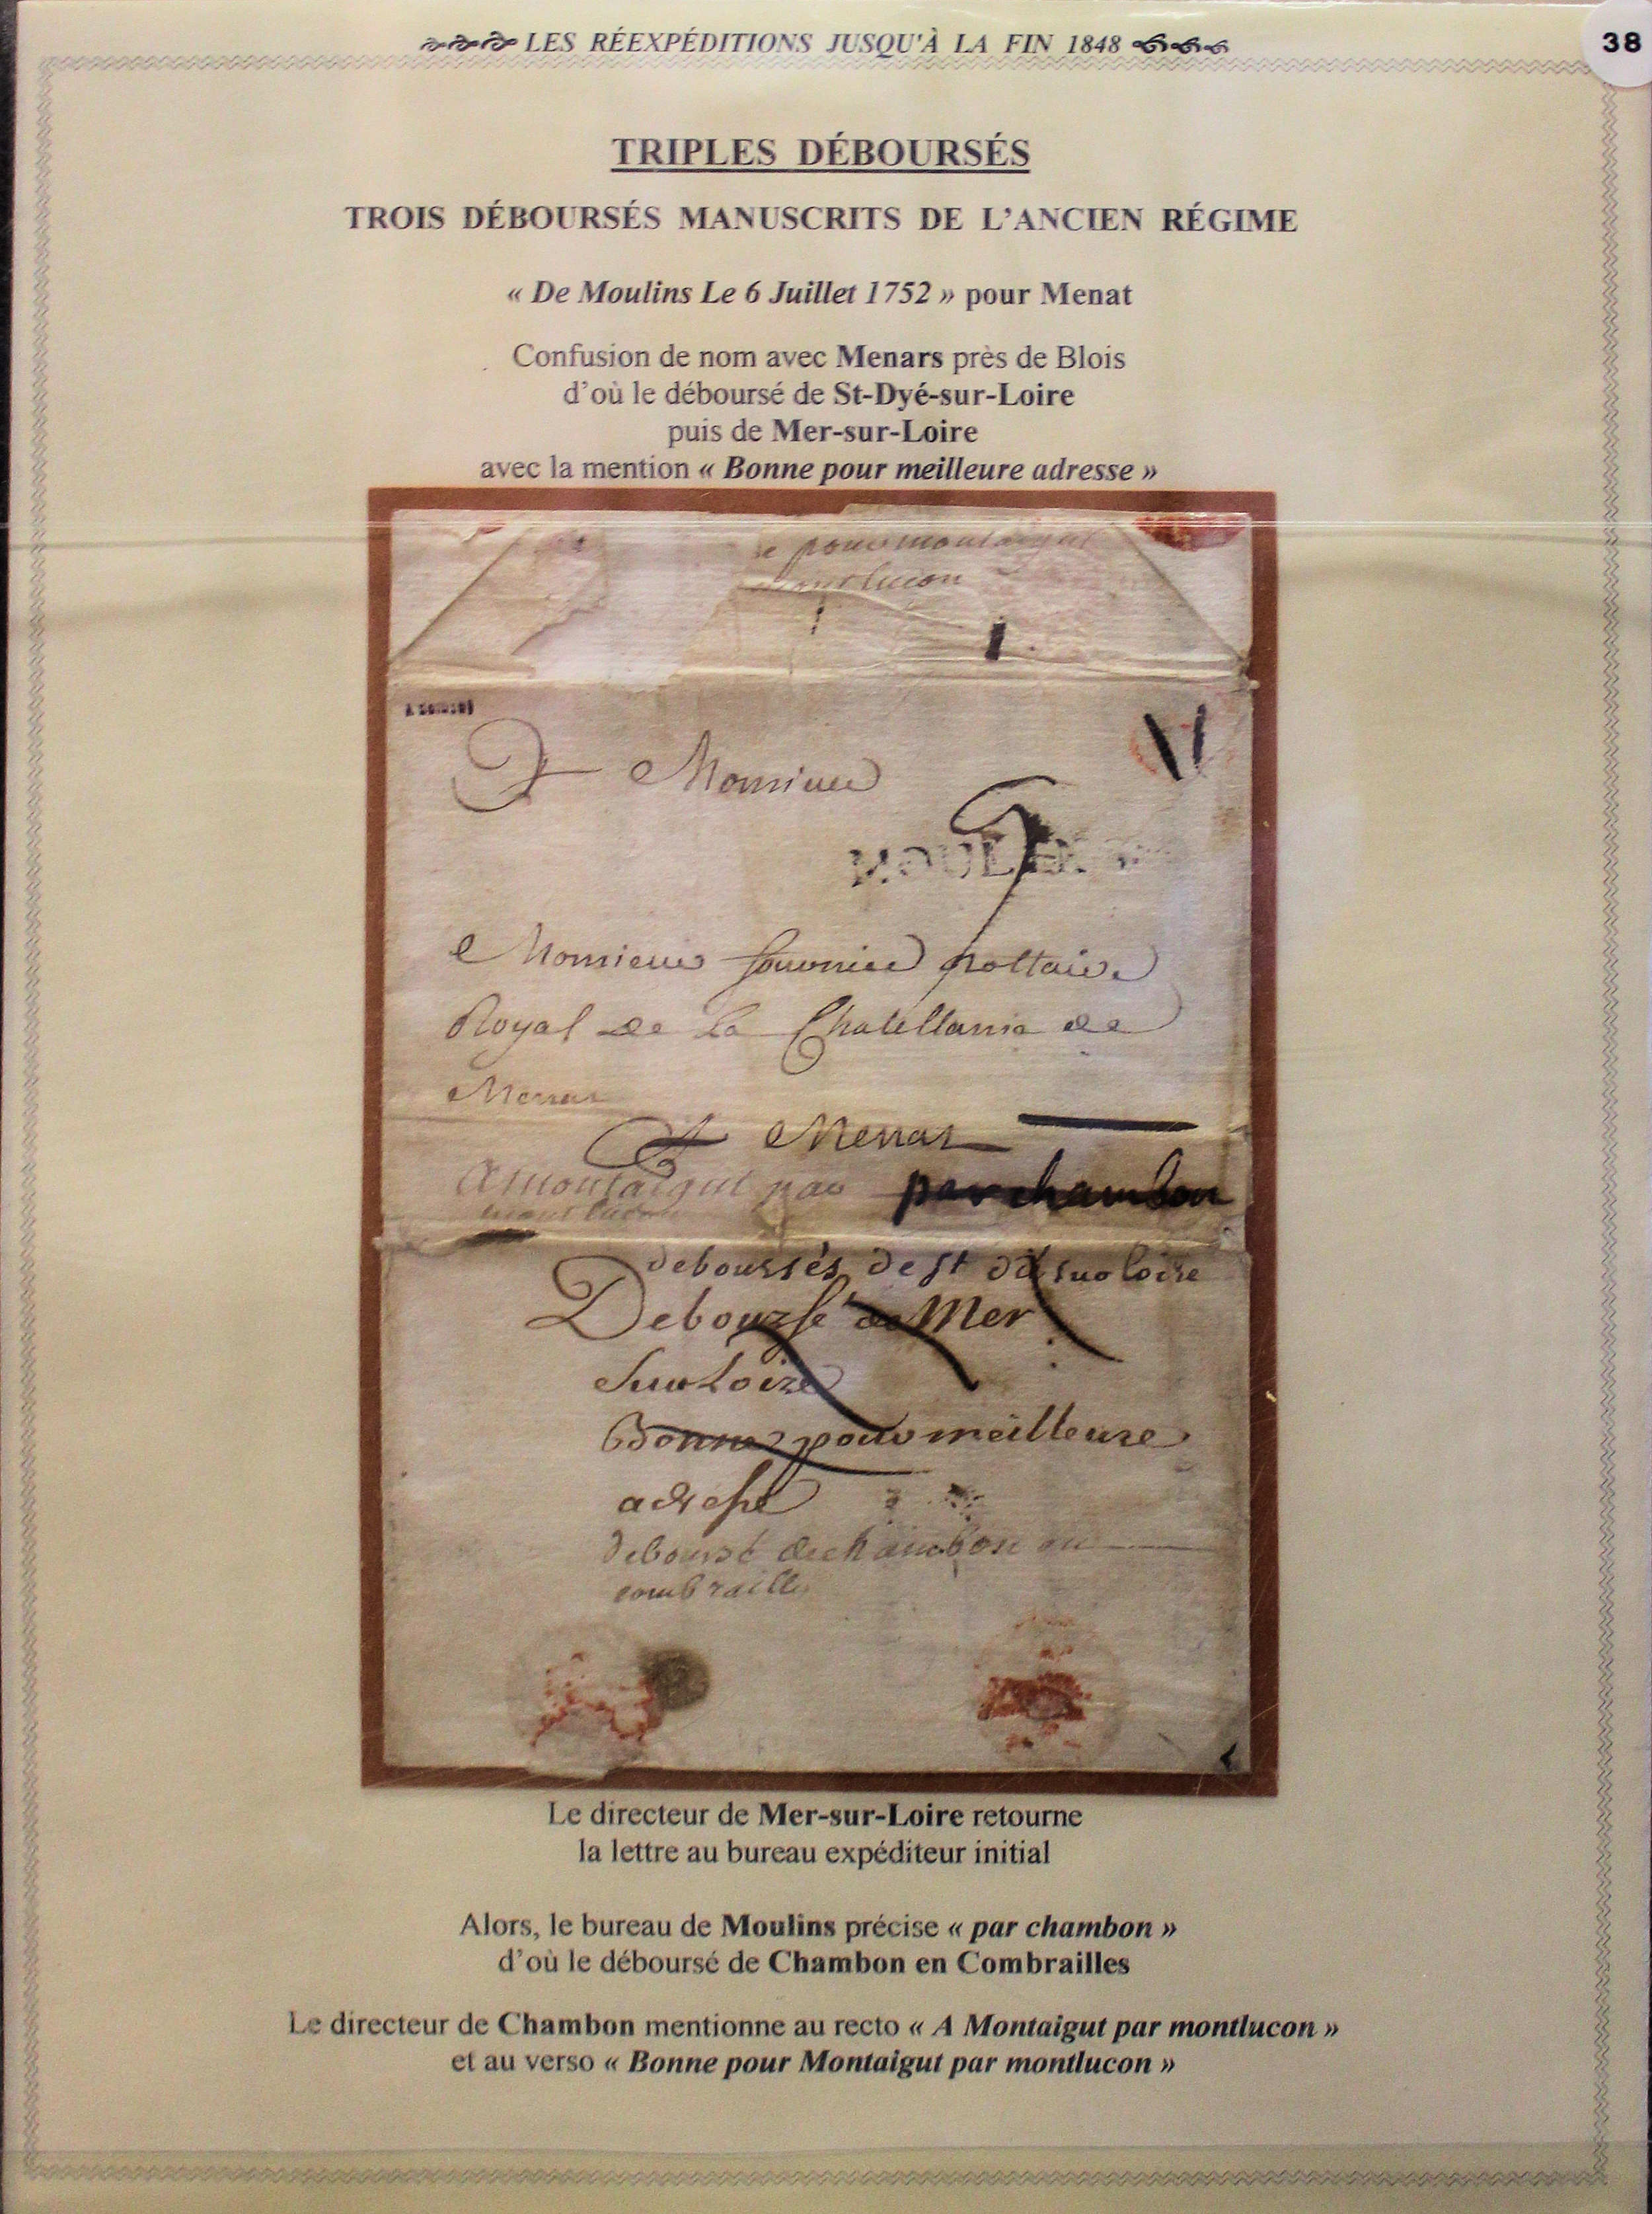 LES RÉEXPÉDITIONS JUSQU'À LA FIN 1848
38
TRIPLES DÉBOURSÉS
TROIS DÉBOURSÉS MANUSCRITS DE L'ANCIEN RÉGIME
« De Moulins Le 6 Juillet 1752 » pour Menat
Confusion de nom avec Menars près de Blois
d'où le déboursé de St-Dyé-sur-Loire
puis de Mer-sur-Loire
avec la mention « Bonne pour meilleure adresse »
e pour montaigut
montlucon
A Monsieur
MOULINS
Monsieur nottaire
Royal de la Chatellanie de
Menat
A Menat
A montaigut par par chambon
montlucon
deboursés de st dié sur loire
Deboursé de Mer
Sur Loire
Bonne pour meilleure
adresse
deboursé de chambon en
combraille
Le directeur de Mer-sur-Loire retourne
la lettre au bureau expéditeur initial
Alors, le bureau de Moulins précise « par chambon »
d'où le déboursé de Chambon en Combrailles
Le directeur de Chambon mentionne au recto « A Montaigut par montlucon »
et au verso « Bonne pour Montaigut par montlucon »